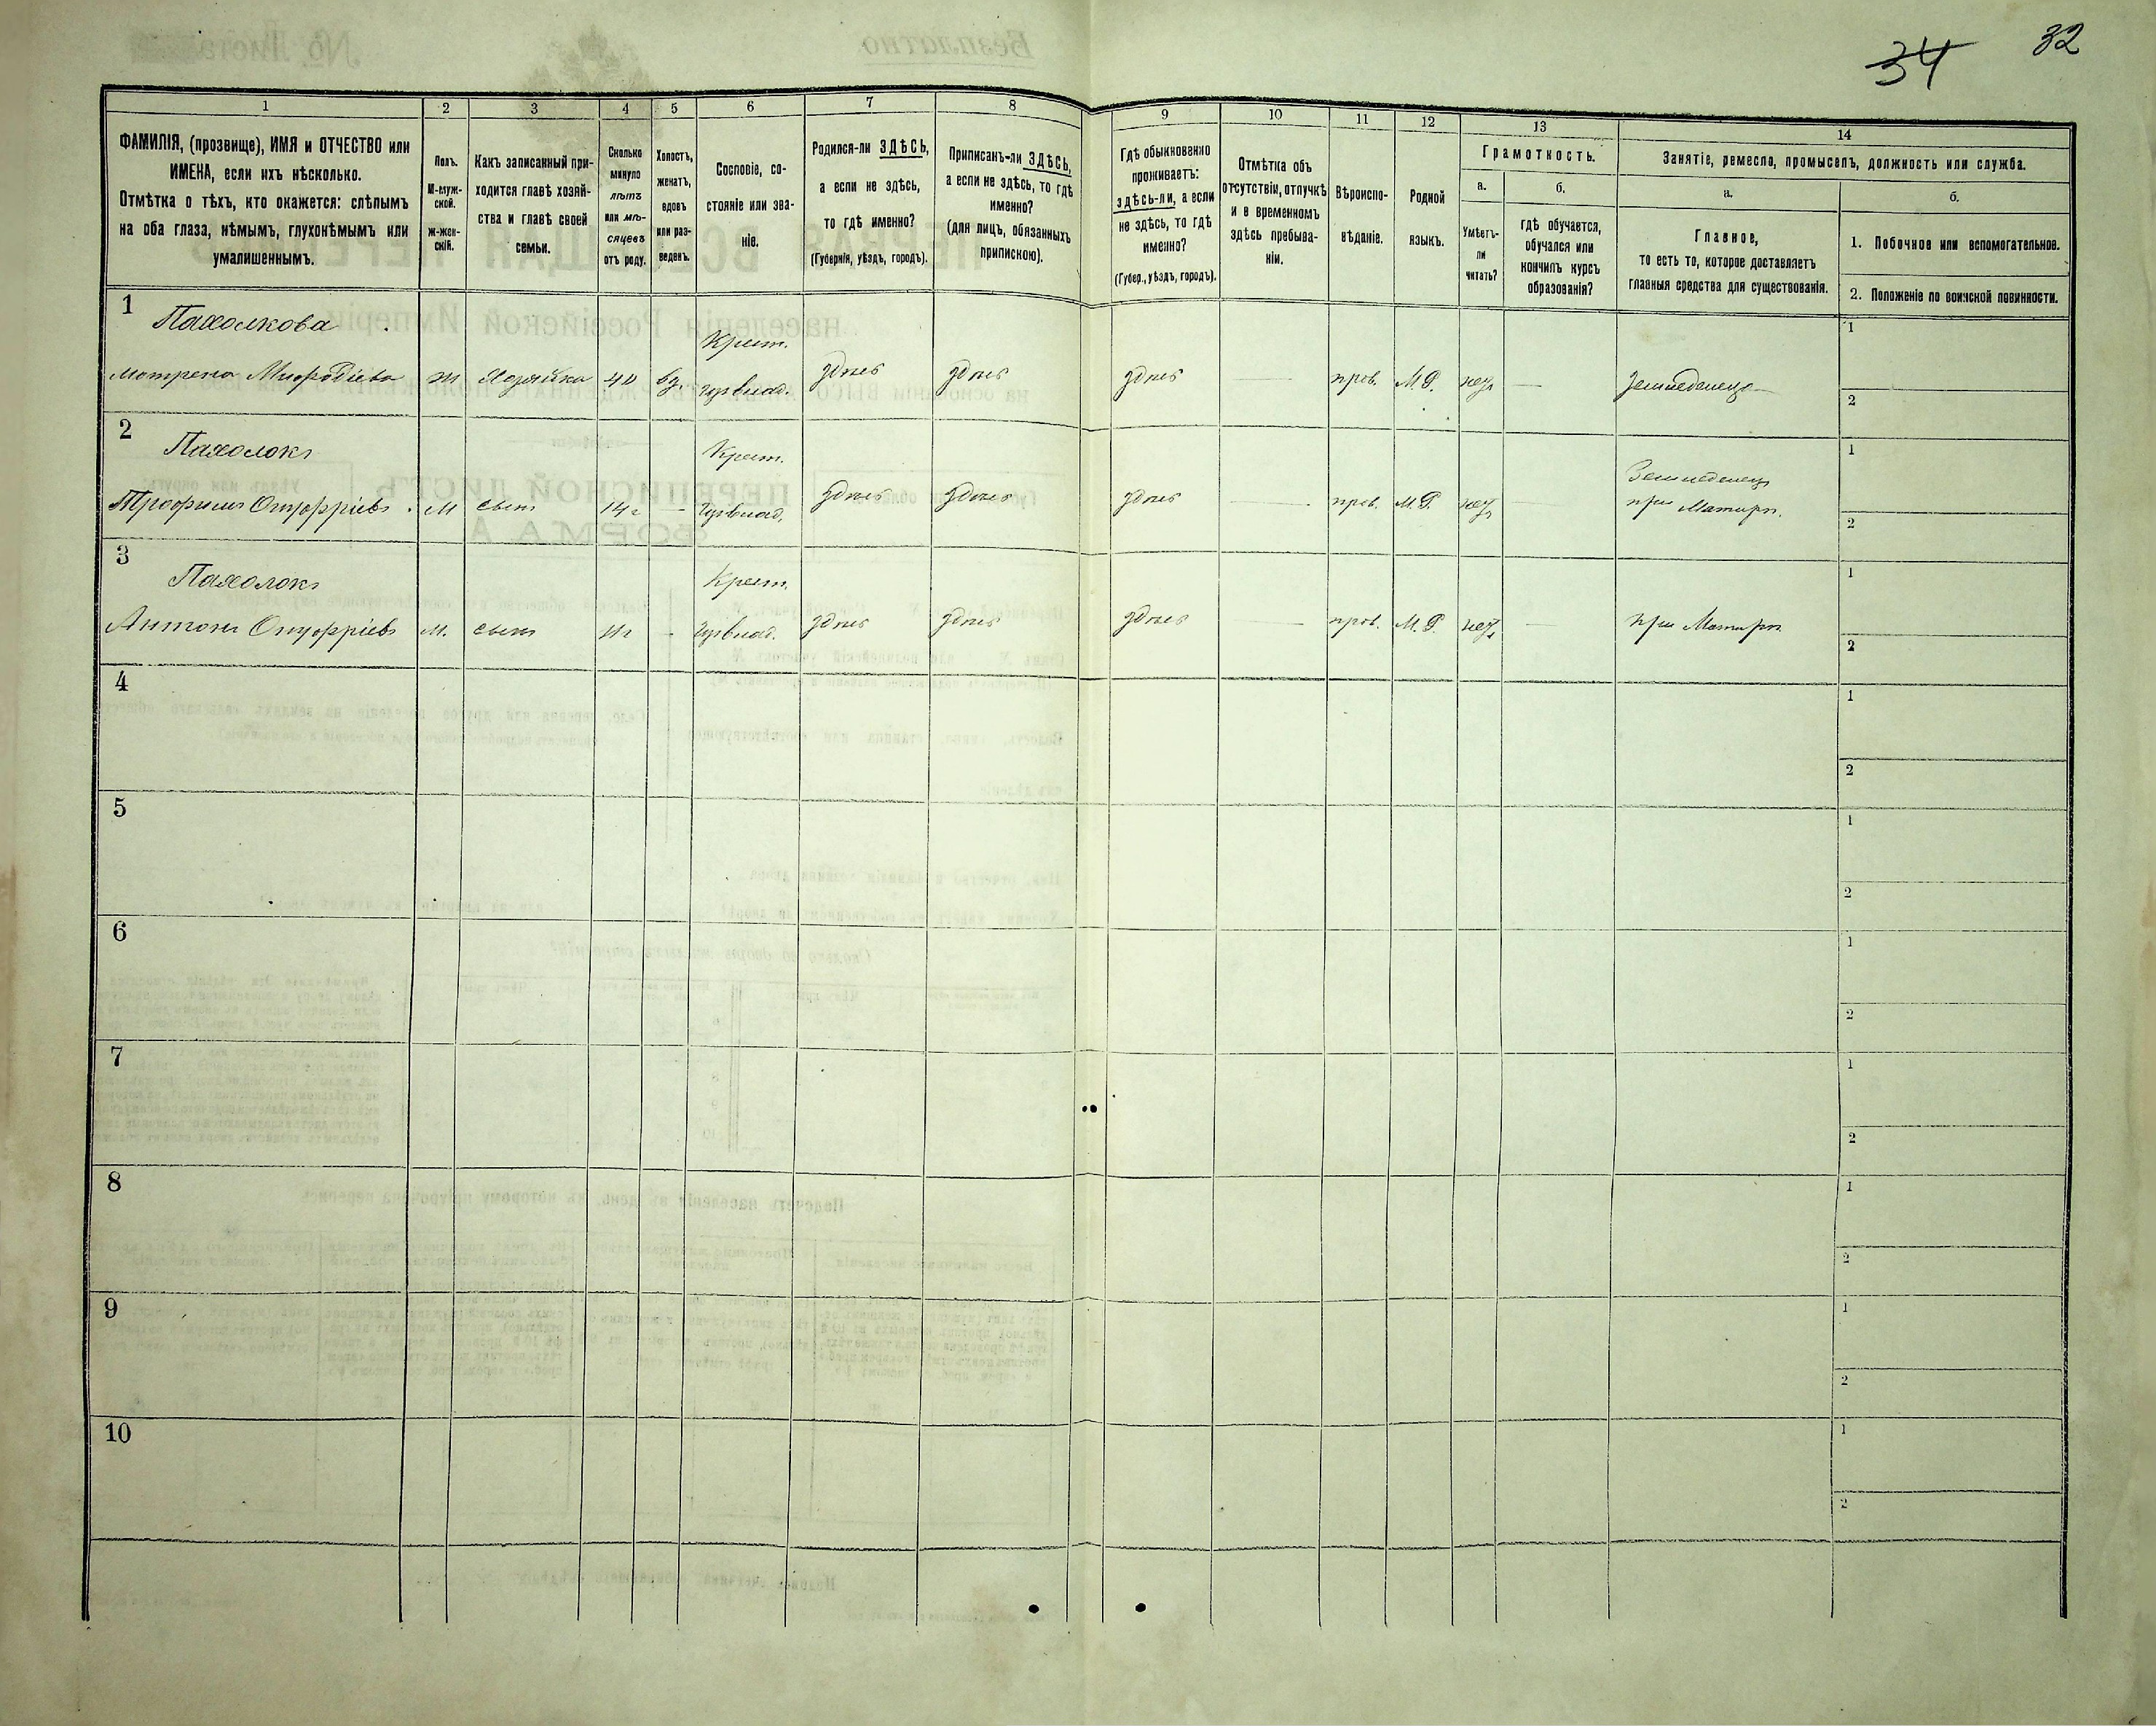 34 32
1 2 3 4 5 6 7 8 9 10 11 12 13 14
ФАМИЛІЯ, (прозвище), ИМЯ и ОТЧЕСТВО или
ИМЕНА, если ихъ нѣсколько.
Отмѣтка о тѣхъ, кто окажется: слѣпымъ
на оба глаза, нѣмымъ, глухонѣмымъ или
умалишеннымъ.
Полъ.
М-муж-
ской.
ж-жен-
скій.
Какъ записанный при-
ходится главѣ хозяй-
ства и главѣ своей
семьи.
Сколько
минуло
лѣтъ
или мѣ-
сяцевъ
отъ роду.
Холостъ,
женатъ,
вдовъ
или раз-
веденъ.
Сословіе, со-
стояніе или зва-
ніе.
Родился-ли ЗДѢСЬ,
а если не здѣсь,
то гдѣ именно?
(Губернія, уѣздъ, городъ).
Приписанъ-ли ЗДѢСЬ,
а если не здѣсь, то гдѣ
именно?
(для лицъ, обязанныхъ
припискою).
Гдѣ обыкновенно
проживаетъ:
здѣсь-ли, а если
не здѣсь, то гдѣ
именно?
(Губер., уѣздъ, городъ).
Отмѣтка объ
отсутствіи, отлучкѣ
и о временномъ
здѣсь пребыва-
ніи.
Вѣроиспо-
вѣданіе.
Родной
языкъ.
Грамотность.
а. б.
Умѣетъ-
ли
читать?
гдѣ обучается,
обучался или
кончилъ курсъ
образованія?
Занятіе, ремесло, промыселъ, должность или служба.
а. б.
Главное,
то есть то, которое доставляетъ
главныя средства для существованія.
1. Побочное или вспомогательное.
2. Положеніе по воинской повинности.
1 Пахолкова Крест. 1
Мотрена ж Хозяйка 40 вд. здѣсь здѣсь здѣсь — прав. М.Р. нѣтъ — Земледѣлецъ
2
2 Пахолокъ Крест. 1
Земледѣлецъ
Трофимъ Онуфріевъ М сынъ 14 - здѣсь здѣсь здѣсь — прав. М.Р. нѣтъ — при Матери.
2
3 Пахолокъ Крест. 1
Антонъ Онуфріевъ М. сынъ 11 - здѣсь здѣсь здѣсь — прав. М.Р. нѣтъ — при Матери
2
4 1
2
5 1
2
6 1
2
7 1
2
8 1
2
9 1
2
10 1
2